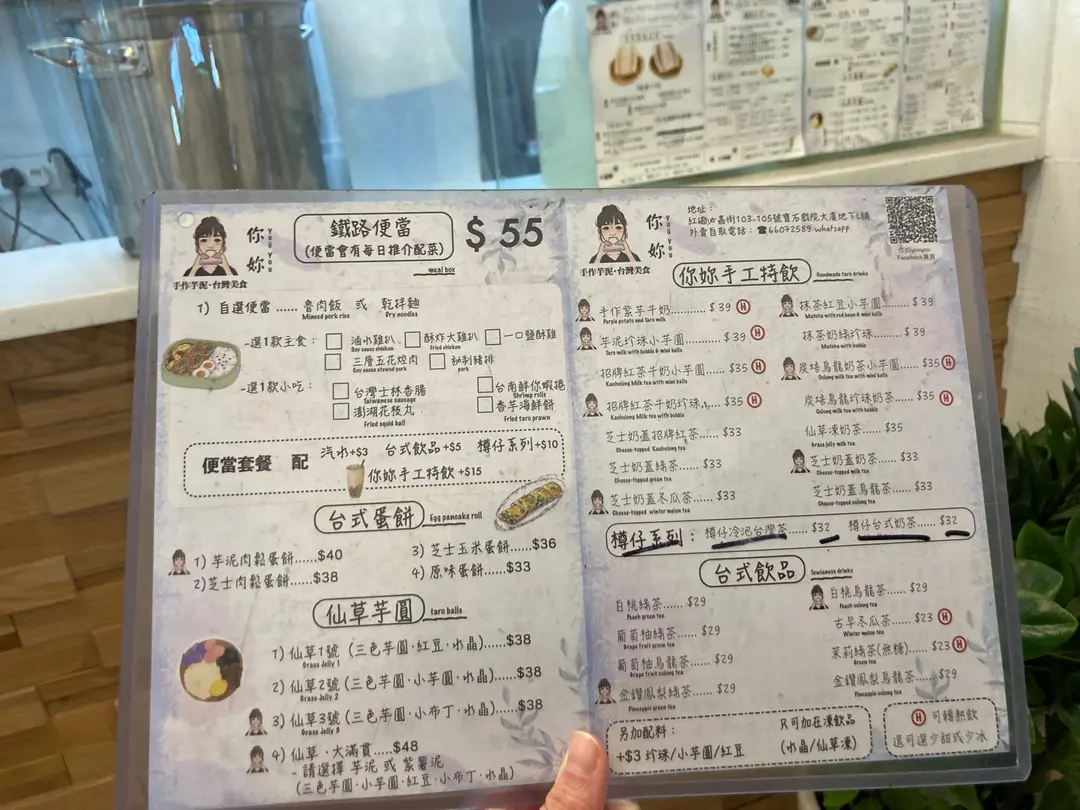 你妳
YOU YOU
手作芋泥·台灣美食
鐵路便當
(便當會有每日推介配菜)
meal box
$ 55
1) 自選便當 ...... 魯肉飯 或 乾拌麵
Minced pork rice
Dry noodles
-選1款主食:
滷水雞扒
Soy sauce chicken
酥炸大雞扒
Fried chicken
一口鹽酥雞
三層五花焢肉
Soy sauce stewed pork
秘制豬排
pork
-選1款小吃:
台灣士林香腸
Taiwanese sausage
台南鮮你蝦捲
Shrimp rolls
澎湖花枝丸
Fried squid ball
香芋海鮮餅
Fried taro prawn
便當套餐 配 汽水+$3 台式飲品+$5 樽仔系列+$10
你妳手工特飲+$15
台式蛋餅
Egg pancake roll
1) 芋泥肉鬆蛋餅......$40
2)芝士肉鬆蛋餅......$38
3) 芝士玉米蛋餅......$36
4) 原味蛋餅......$33
仙草芋圓
taro balls
1) 仙草1號 (三色芋圓·紅豆·水晶)......$38
Grass Jelly 1
2) 仙草2號 (三色芋圓·小芋圓·水晶)......$38
Grass Jelly 2
3) 仙草3號 (三色芋圓·小布丁·水晶)......$38
4) 仙草·大滿貫......$48
- 請選擇 芋泥 或 紫薯泥
(三色芋圓·小芋圓·紅豆·小布丁·水晶)
你妳
YOU YOU
手作芋泥·台灣美食
地址:
紅磡必嘉街103-105號寶石戲院大廈地下L舖
外賣自取電話: ☎66072589 whatsapp
Facebook專頁
你妳手工特飲
Handmade taro drinks
手作紫芋牛奶......$39 H
Purple potato and Taro milk
芋泥珍珠小芋圓......$39 H
Taro milk with bubble & mini balls
招牌紅茶牛奶小芋圓......$35 H
Kaohsiung Milk tea with mini balls
招牌紅茶牛奶珍珠......$35 H
Kaohsiung Milk tea with bubble
芝士奶蓋招牌紅茶......$33
芝士奶蓋綠茶......$33
Cheese-topped green tea
芝士奶蓋冬瓜茶......$33
Cheese-topped winter melon tea
抹茶紅豆小芋圓......$39
Matcha with red bean & mini balls
抹茶奶綠珍珠......$39
Matcha with bubble
炭培烏龍奶茶小芋圓......$35 H
Oolong milk tea with mini balls
炭培烏龍珍珠奶茶......$35 H
Oolong milk tea with bubble
仙草凍奶茶......$35
Grass jelly milk tea
芝士奶蓋奶茶......$33
Cheese-topped milk tea
芝士奶蓋烏龍茶......$33
Cheese-topped oolong tea
樽仔系列: 樽仔冷泡台灣茶......$32 樽仔台式奶茶......$32
台式飲品
Taiwanese drinks
白桃綠茶......$29
Peach green tea
葡萄柚綠茶......$29
Grape fruit green tea
葡萄柚烏龍茶......$29
Grape fruit oolong tea
金鑽鳳梨綠茶......$29
Pineapple green tea
白桃烏龍茶......$29
Peach oolong tea
古早冬瓜茶......$23 H
Winter melon tea
茉莉綠茶(無糖)......$23 H
Green tea
金鑽鳳梨烏龍茶......$29
Pineapple oolong tea
另加配料:
+$3 珍珠/小芋圓/紅豆
只可加在凍飲品
(水晶/仙草凍)
H 可轉熱飲
還可選少甜或少冰